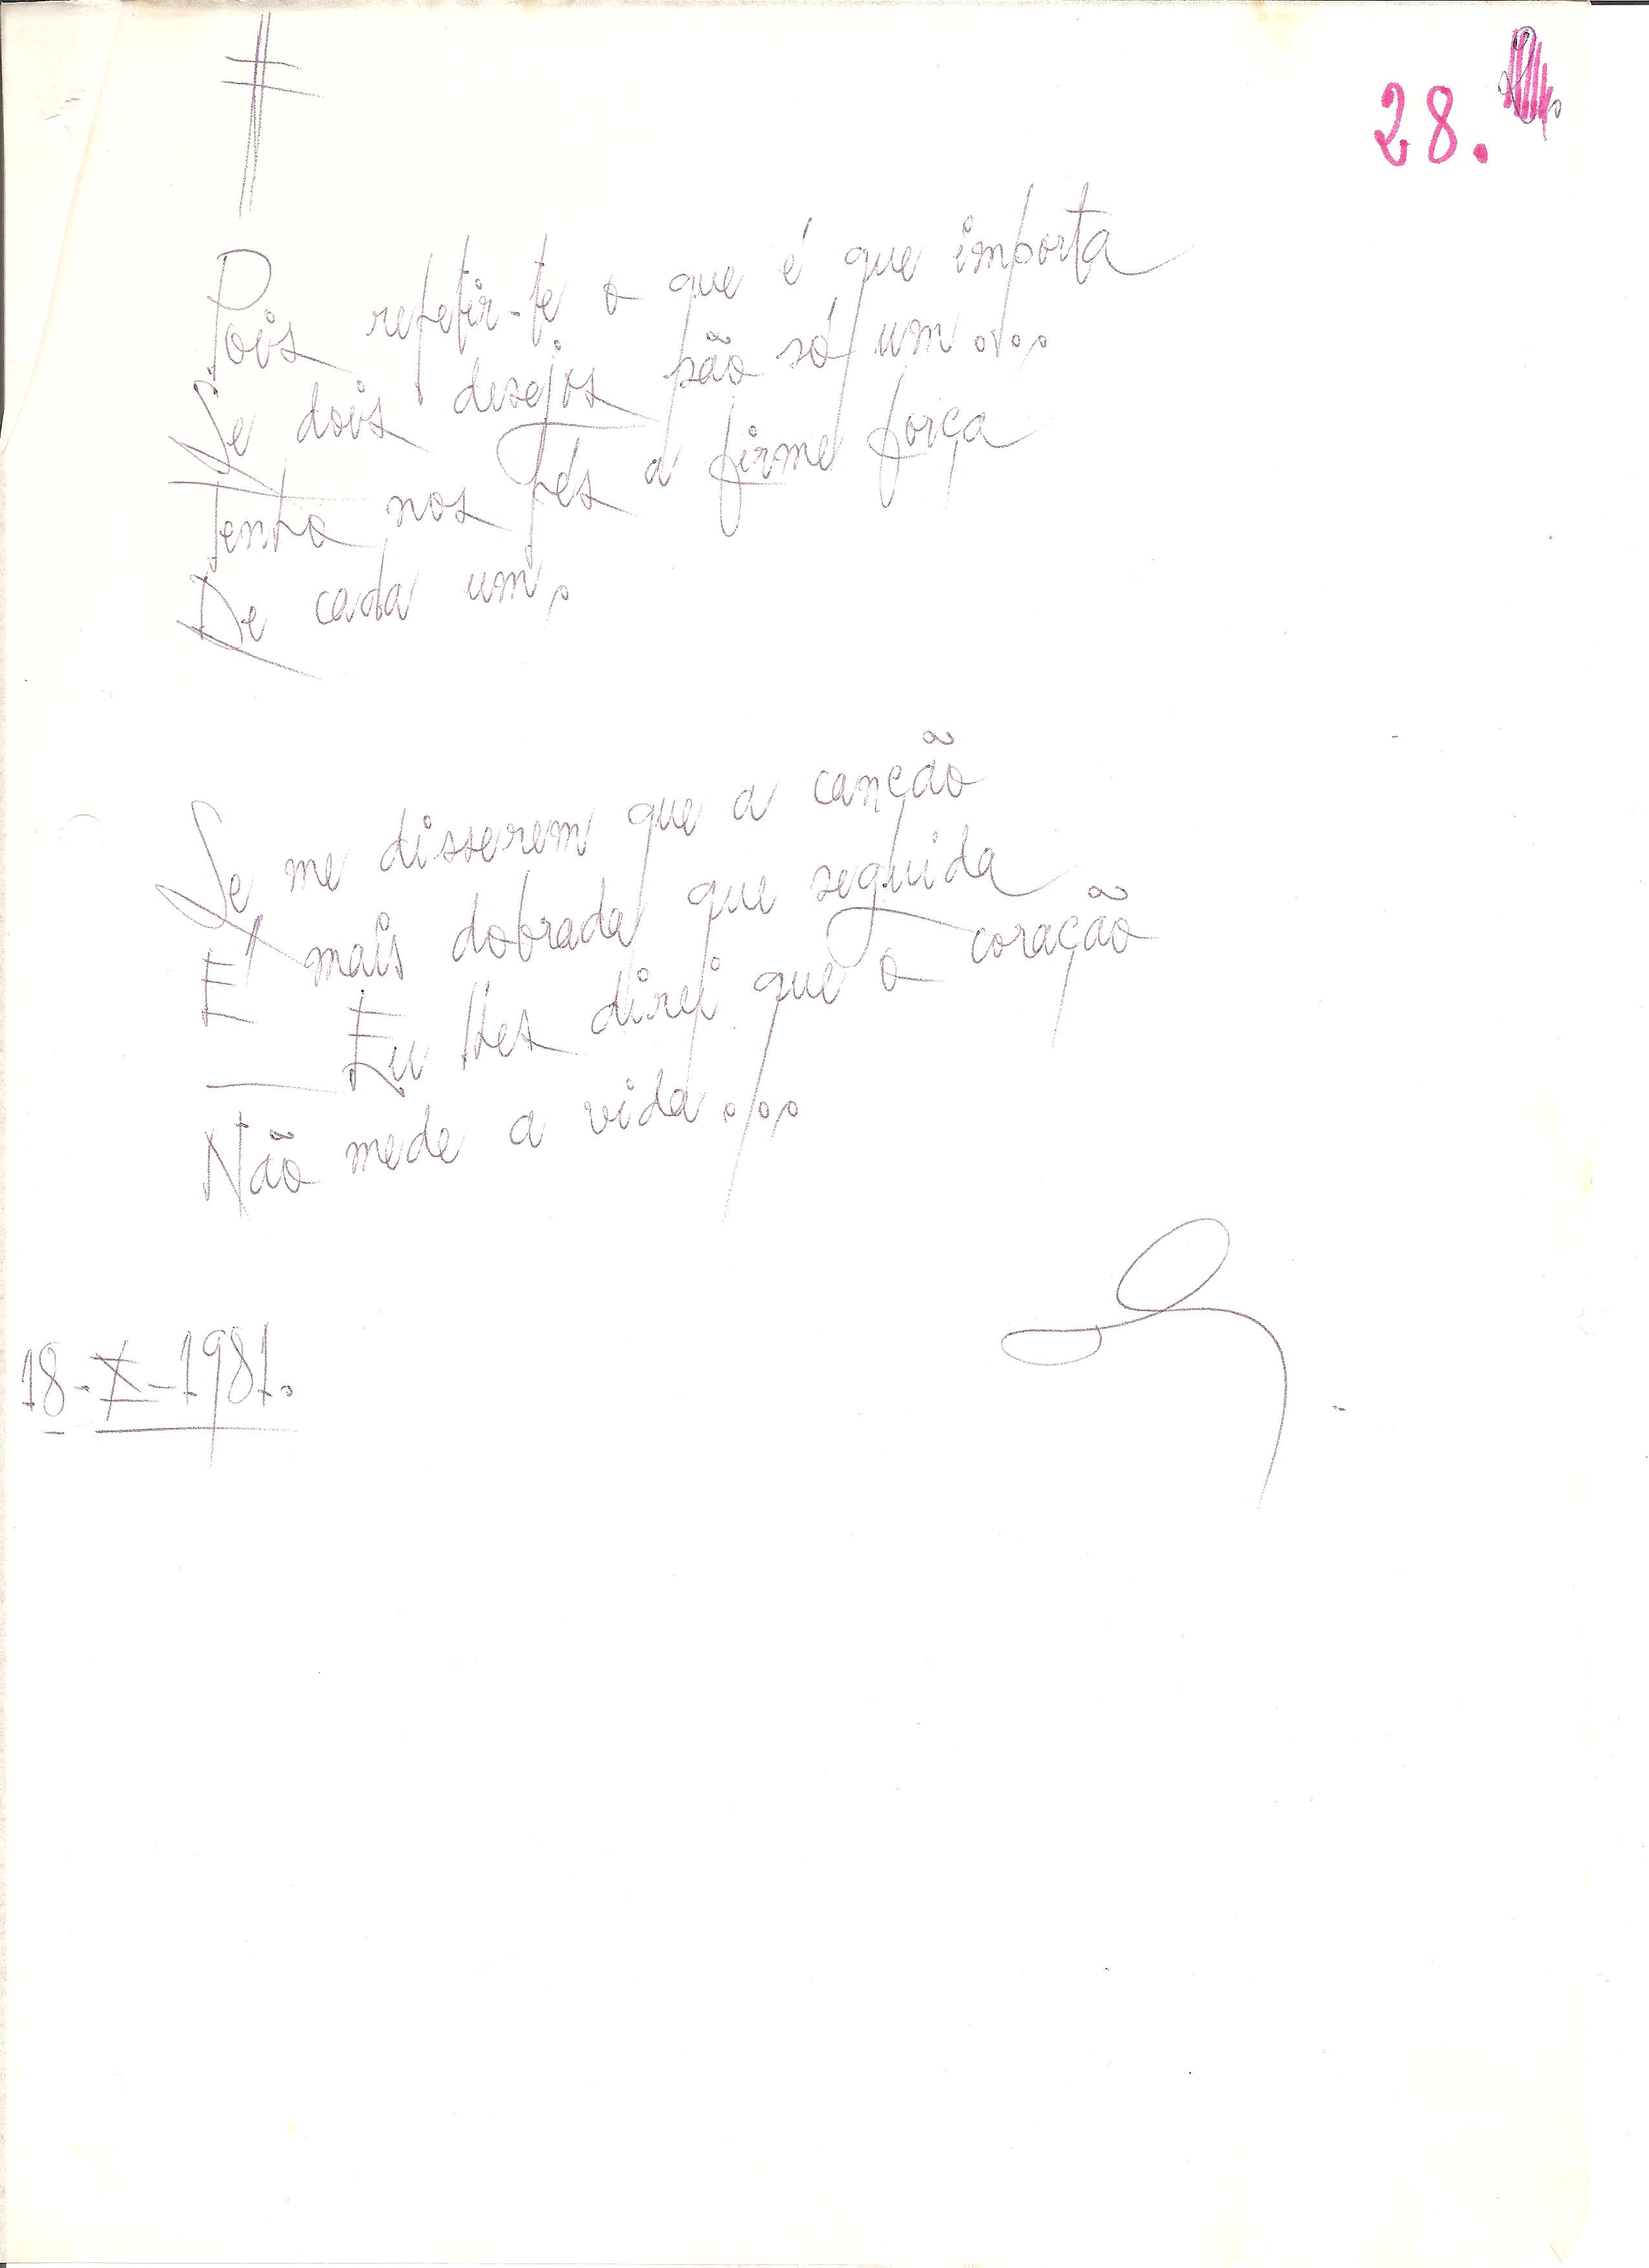 28.
Pois repetir-te o que é que importa
Se dois desejos são só um...
Tenho nos pés a firme força
De cada um.
Se me disserem que a canção
É mais dobrada que seguida
— Eu lhes direi que o coração
Não mede a vida...
18-X-1981.